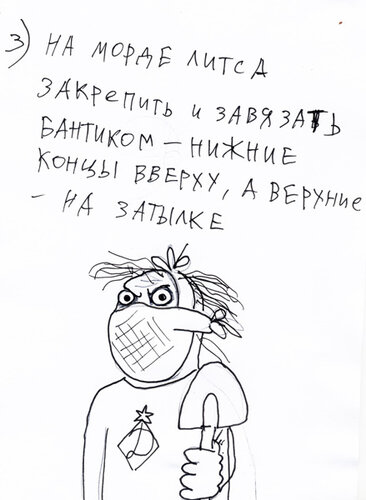 3) НА МОРДЕ ЛИТСА
ЗАКРЕПИТЬ И ЗАВЯЗАТЬ
БАНТИКОМ – НИЖНИЕ
КОНЦЫ ВВЕРХУ, А ВЕРХНИЕ
– НА ЗАТЫЛКЕ
Д